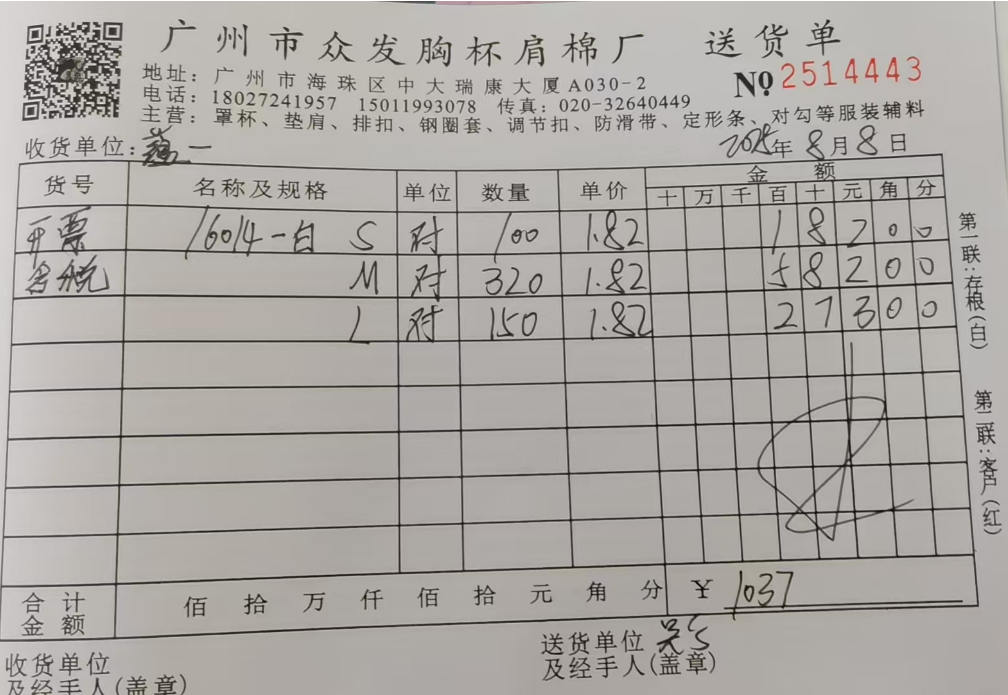 广州市众发胸杯肩棉厂 送货单
地址：广州市海珠区中大瑞康大厦A030-2 № 2514443
电话：18027241957 15011993078 传真：020-32640449
主营：罩杯、垫肩、排扣、钢圈套、调节扣、防滑带、定形条、对勾等服装辅料
收货单位： 一 2025年8月8日
货号 名称及规格 单位 数量 单价 金额
十 万 千 百 十 元 角 分
开票 16014-白 S 对 100 1.82 1 8 2 0 0
含税 M 对 320 1.82 5 8 2 0 0
L 对 150 1.82 2 7 3 0 0
合计金额 佰 拾 万 仟 佰 拾 元 角 分 ¥ 1037
收货单位及经手人(盖章)
送货单位及经手人(盖章)
第一联：存根(白)
第二联：客户(红)